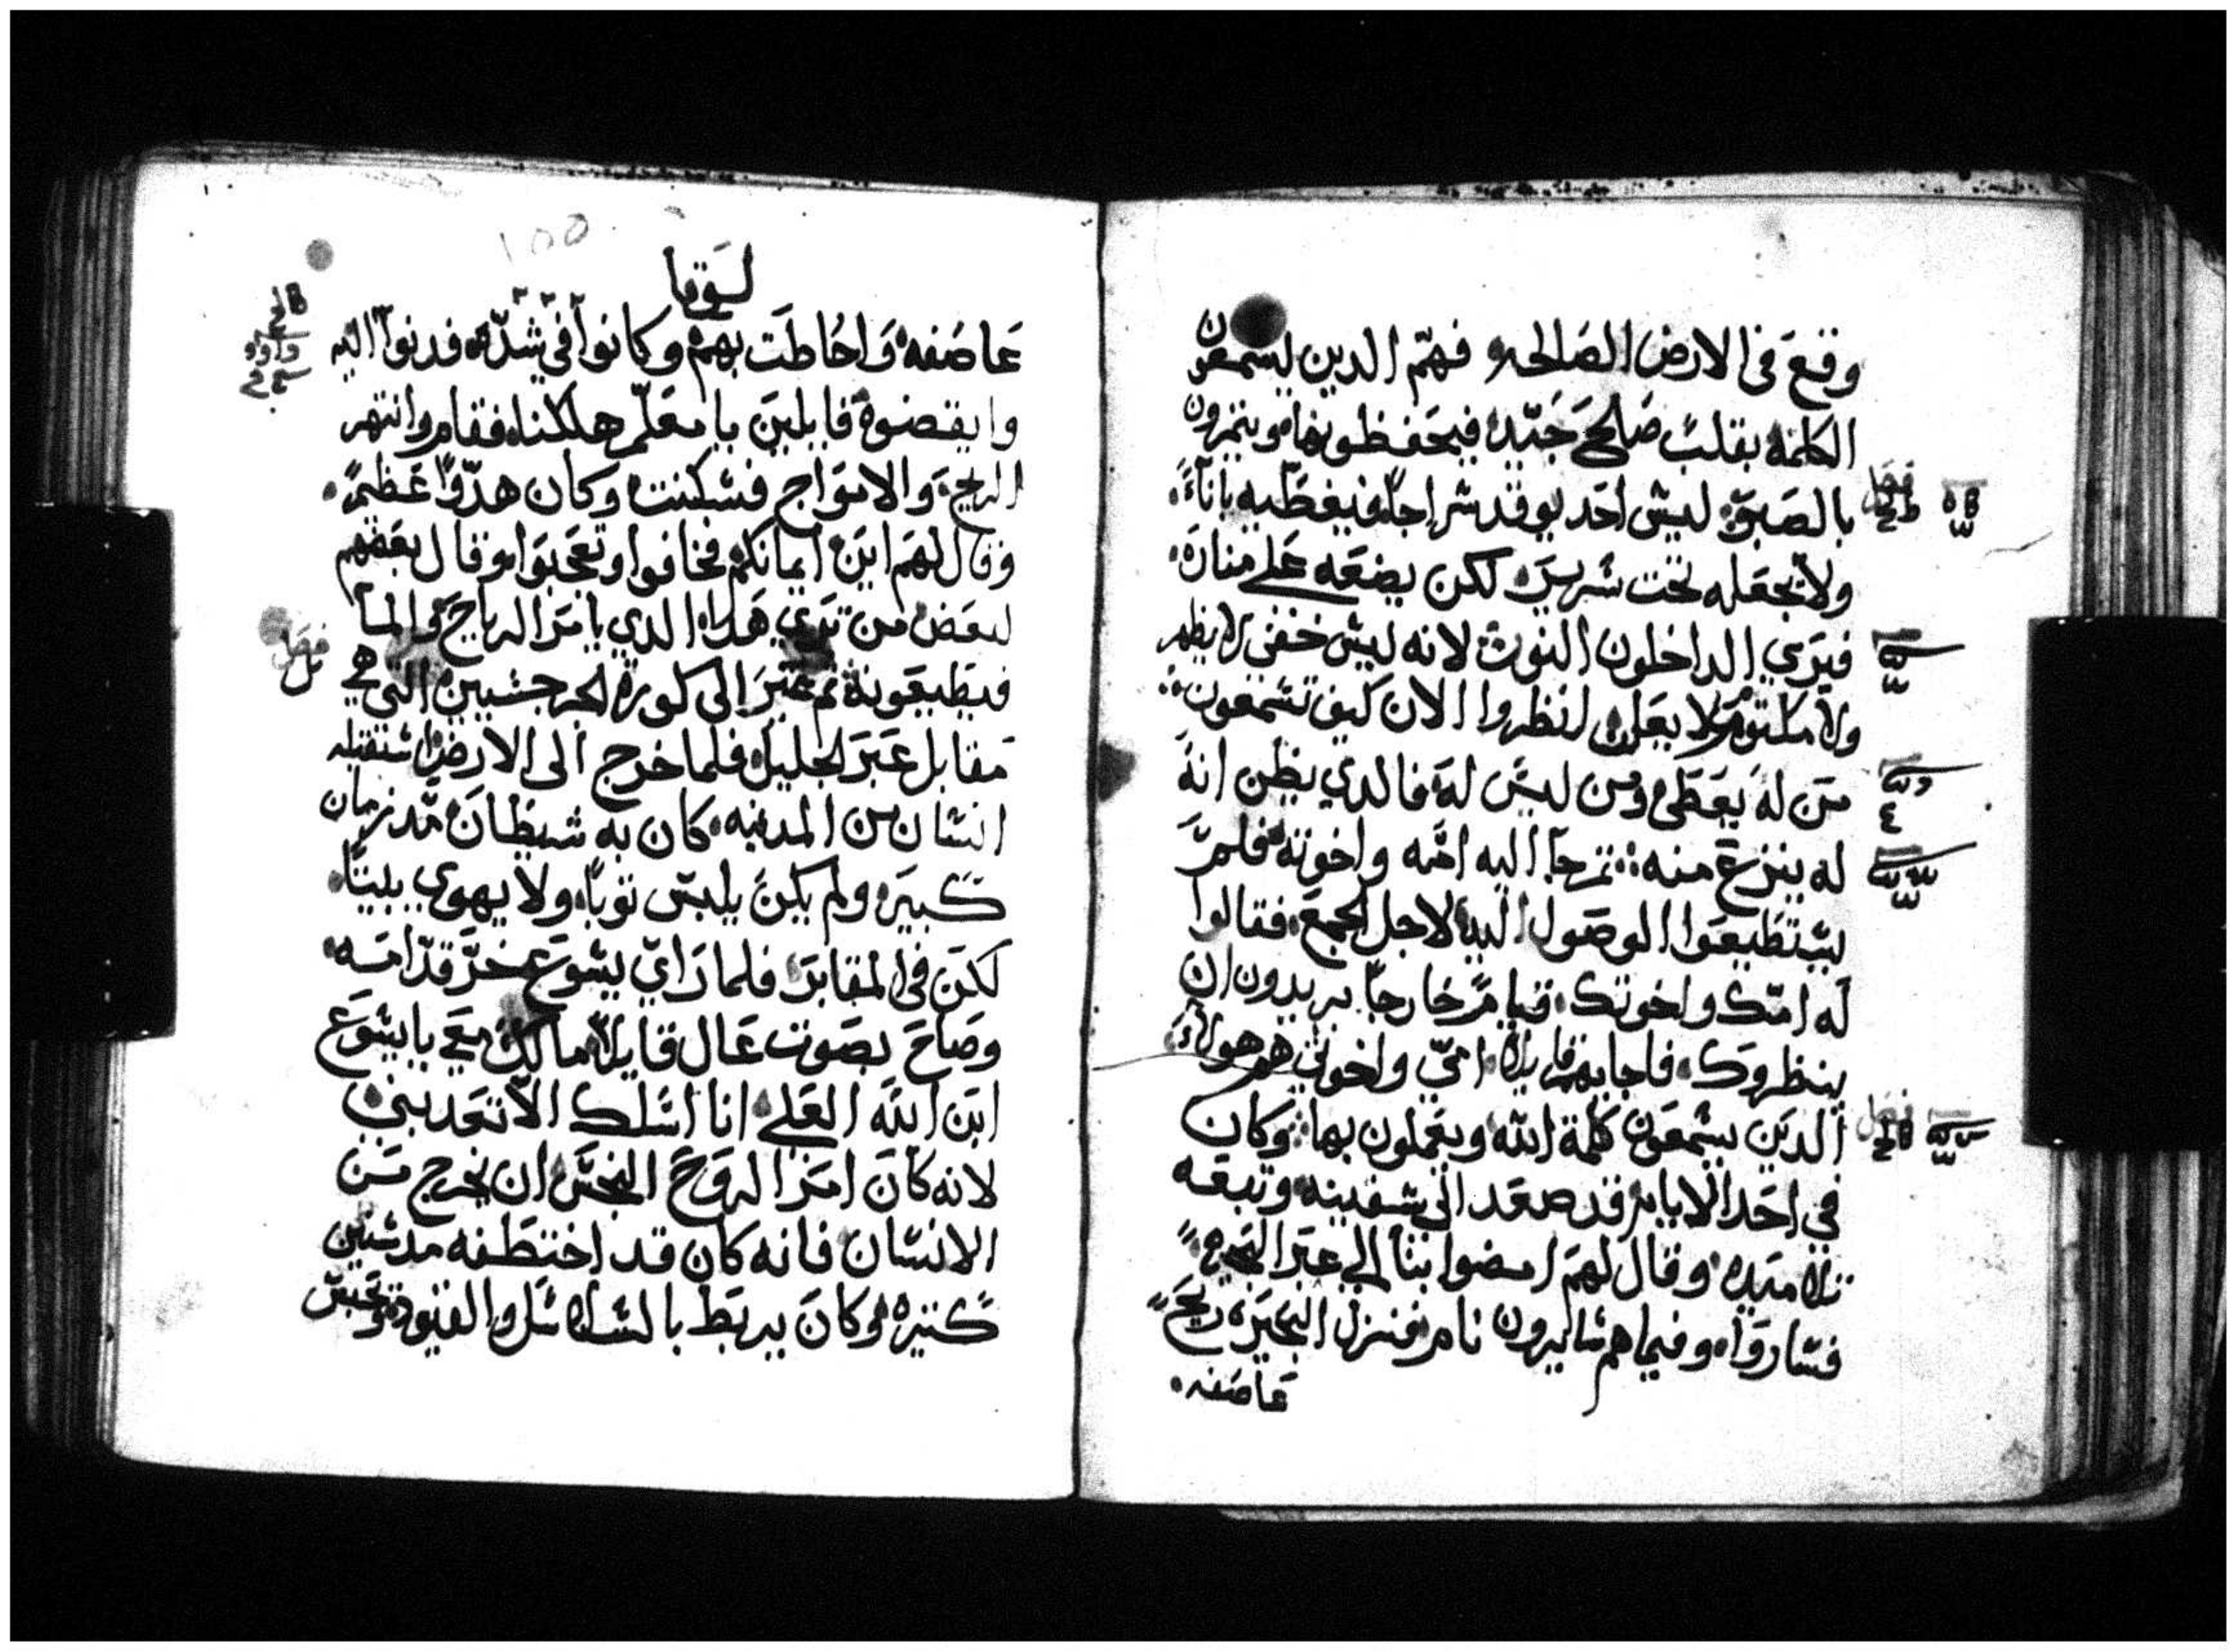 وقع في الارض الصالحه فهم الدين ليسمعون
الكلمة بقلب صالح جيد فيحفظونها ويتمرون
بالصبر ليس احد يوقد سراجا فيغطيه باناء
ولا يجعله تحت سرير لكن يضعه علي منارة
فيري الداخلون النور لانه ليس خفي لا يظهر
ولا مكتوم لا يعلن انظروا الان كيف تسمعون
من له يعطي ومن ليس له فالدي يظن انه
له ينزع منه تم جا اليه امه واخوته فلم
يستطيعوا الوصول اليه لاجل الجمع فقالوا
له امك واخوتك قيام خارجا يريدون ان
ينظروك فاجابهم قايلا امي واخوتي هم هولاء
الدين يسمعون كلمة الله ويعملون بها وكان
في احد الايام قد صعد الي سفينه وتبعه
تلاميده وقال لهم امضوا بنا الي عبر البحيرة
فساروا وفيما هم سايرون نام فنزل البحيرة ريح
عاصفه
لوقا
عاصفه واحاطت بهم وكانوا في شدة فدنوا اليه
وايقضوة قايلين يا معلم هلكنا فقام وانتهر
الريح والامواج فسكنت وكان هدوا عظيم
وقال لهم اين ايمانكم فخافوا وتعجبوا وقال بعضهم
لبعض من تري هدا الدي يامر الرياح والما
فيطيعونه تم عبر الي كورة الجرجسيين التي هي
مقابل عبر الجليل فلما خرج الي الارض استقبله
انسان من المدينه كان به شيطان مد زمان
كبير ولم يكن يلبس توبا ولا يهوي بليتا
لكن في المقابر فلما راي يسوع خر قدامه
وصاح بصوت عال قايلا ما لك معي يا يسوع
ابن الله العلي انا اسلك الا تعدبني
لانه كان امر الروح النجس ان يخرج من
الانسان فانه كان قد اختطفه مد سنين
كتيره وكان يربط بالسلاسل والقيود وتحبس